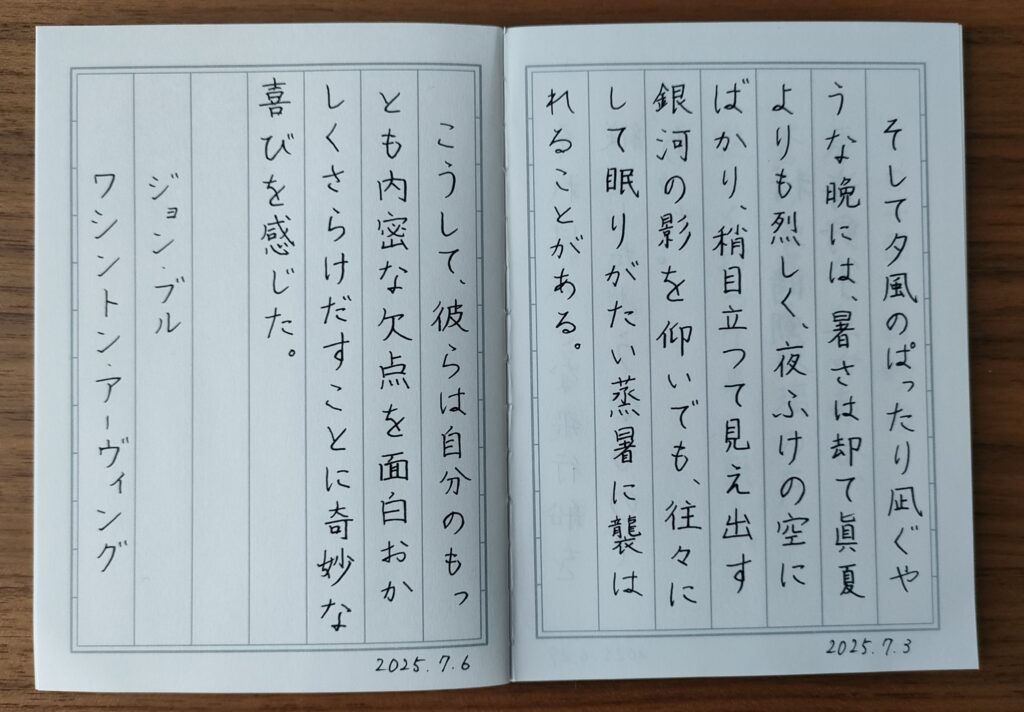 そして夕風のぱったり凪ぐや
うな晩には、暑さは却て眞夏
よりも烈しく、夜ふけの空に
ばかり、稍目立つて見え出す
銀河の影を仰いでも、往々に
して眠りがたい蒸暑に襲は
れることがある。
2025.7.3
こうして、彼らは自分のもっ
とも内密な欠点を面白おか
しくさらけだすことに奇妙な
喜びを感じた。
ジョン・ブル
ワシントン・アーヴィング
2025.7.6